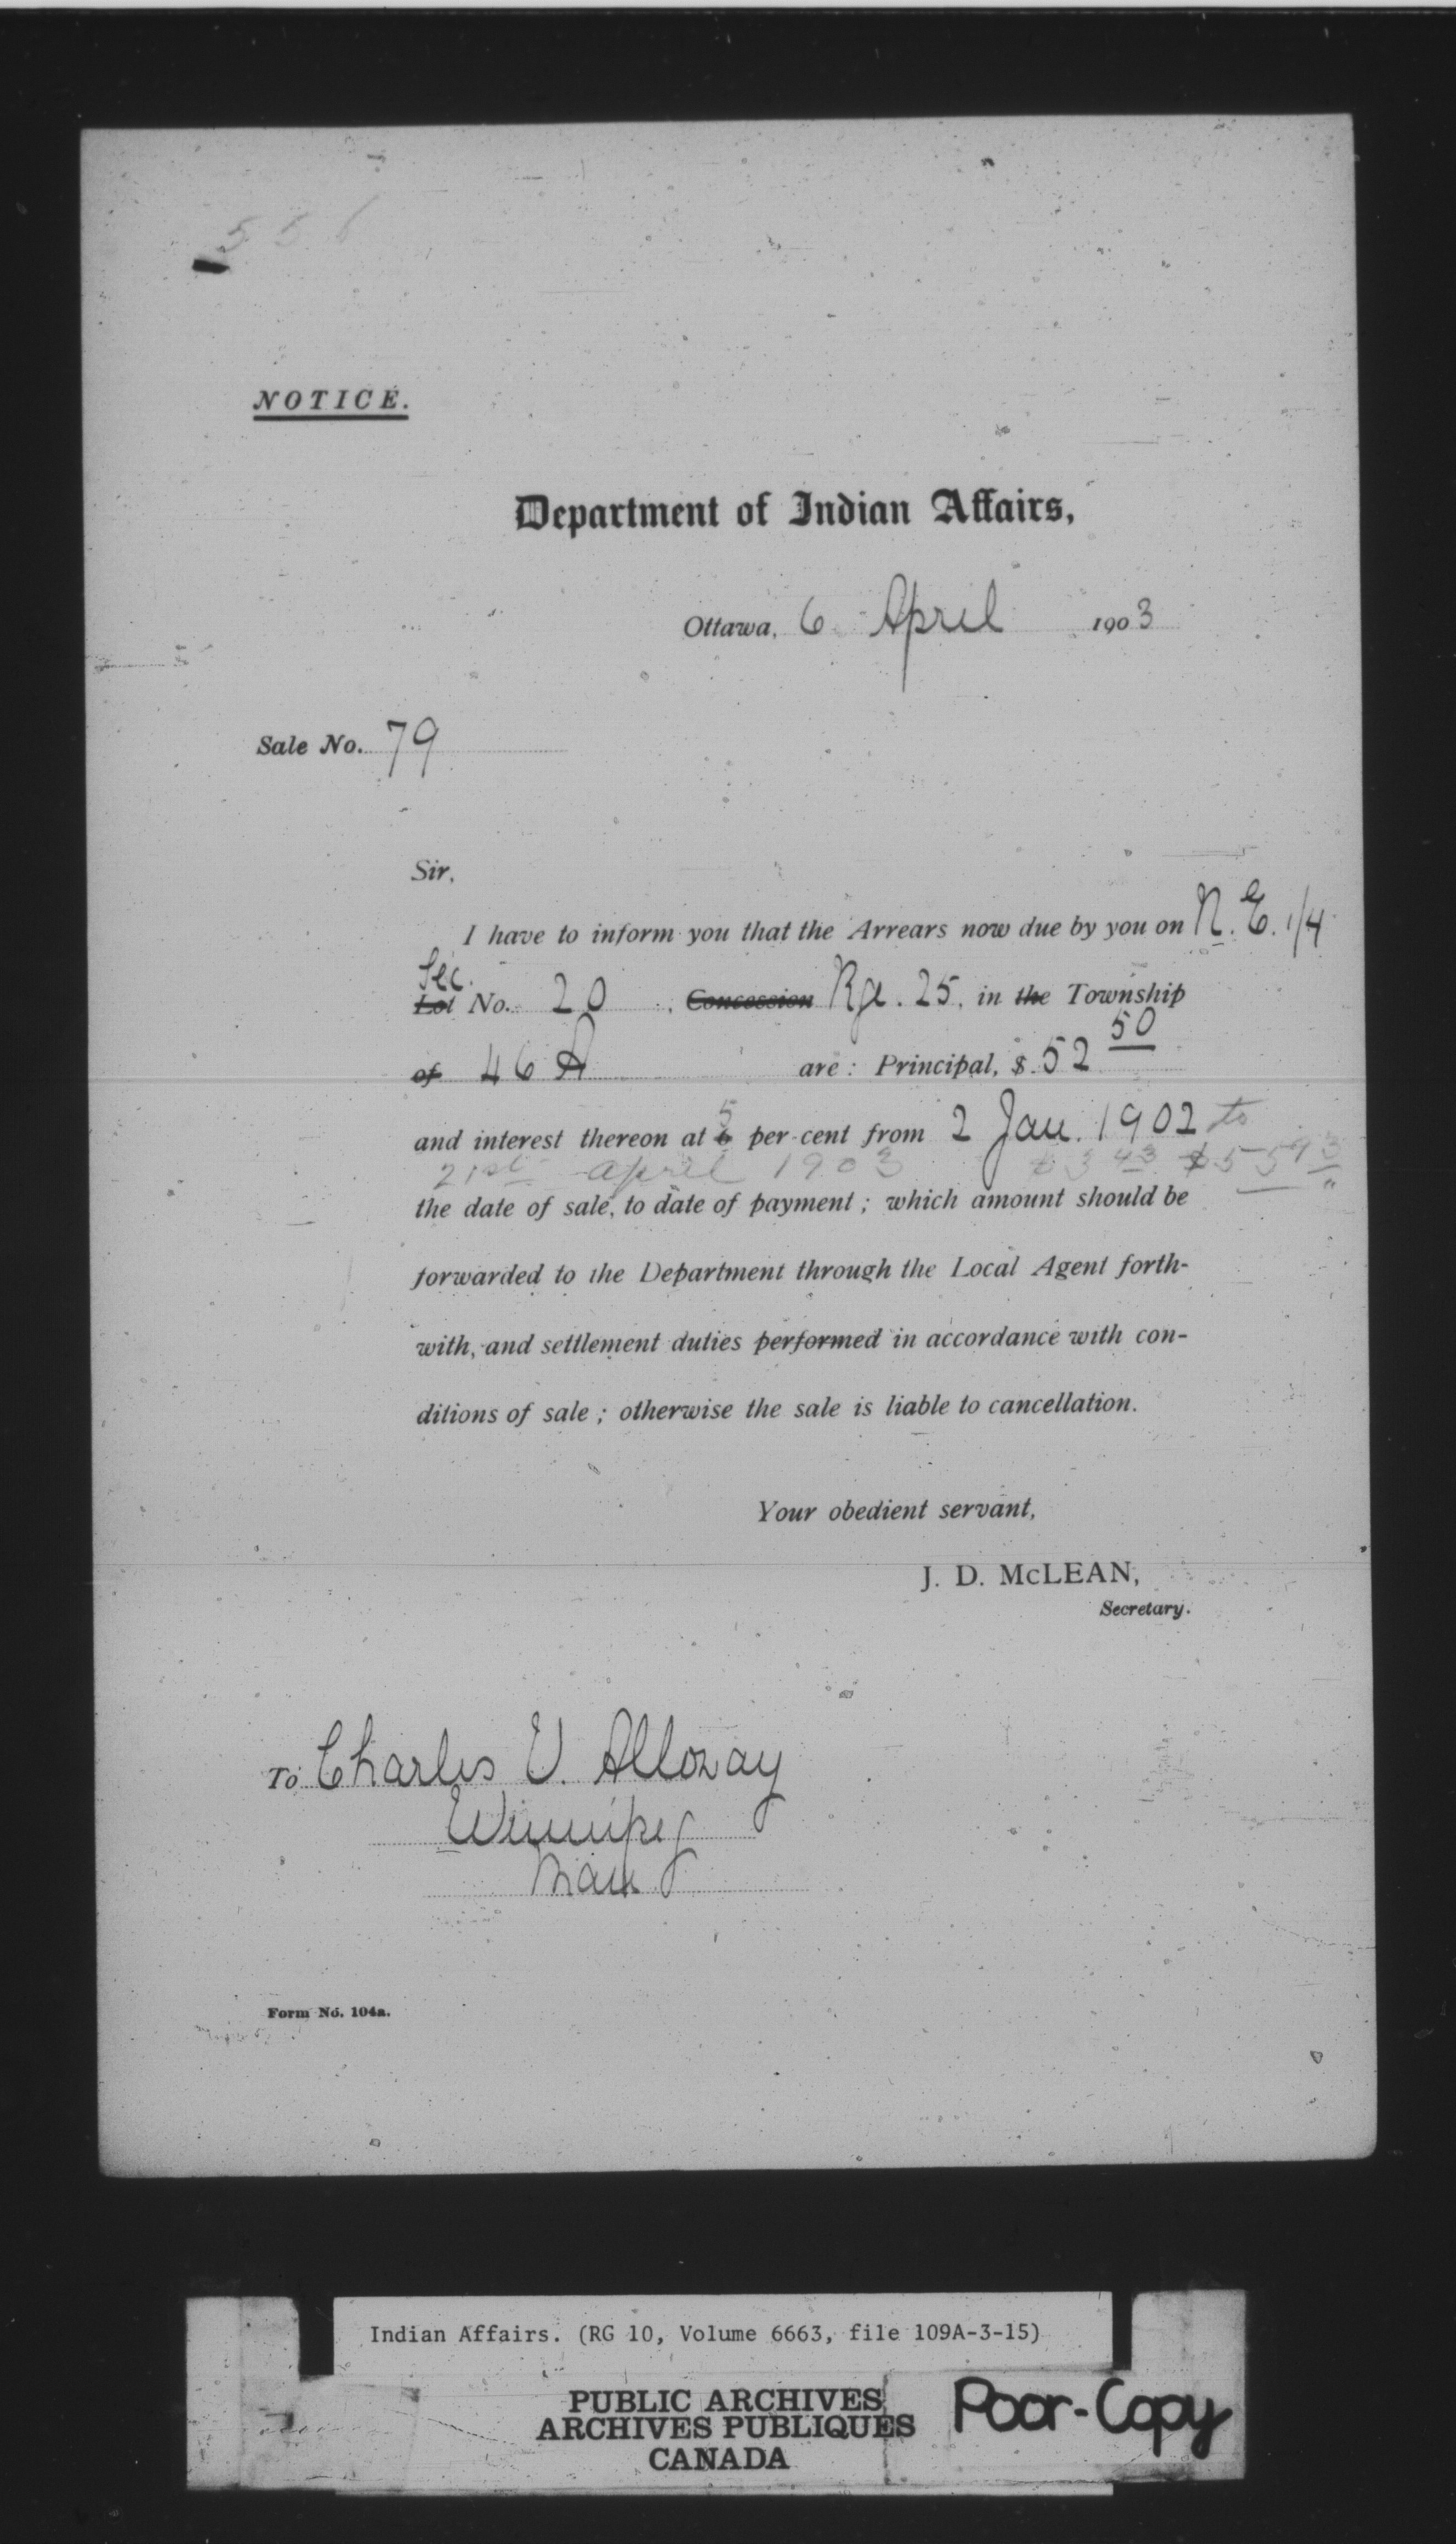 556
NOTICE.
Department of Indian Affairs,
Ottawa, 6 April 1903
Sale No. 79
Sir,
I have to inform you that the Arrears now due by you on N. E. 1/4
Sec.
Lot No. 20 , Concession Rge. 25, in the Township
of 46 A are: Principal, $ 52 50
and interest thereon at 6 5 per cent from 2 Jan. 1902 to
21st april 1903 $3 43 $55 93
the date of sale, to date of payment; which amount should be
forwarded to the Department through the Local Agent forth-
with, and settlement duties performed in accordance with con-
ditions of sale; otherwise the sale is liable to cancellation.
Your obedient servant,
J. D. McLEAN,
Secretary.
To Charles V. Alloway
Winnipeg
Man
Form No. 104a.
Indian Affairs. (RG 10, Volume 6663, file 109A-3-15)
PUBLIC ARCHIVES
ARCHIVES PUBLIQUES
CANADA
Poor-Copy